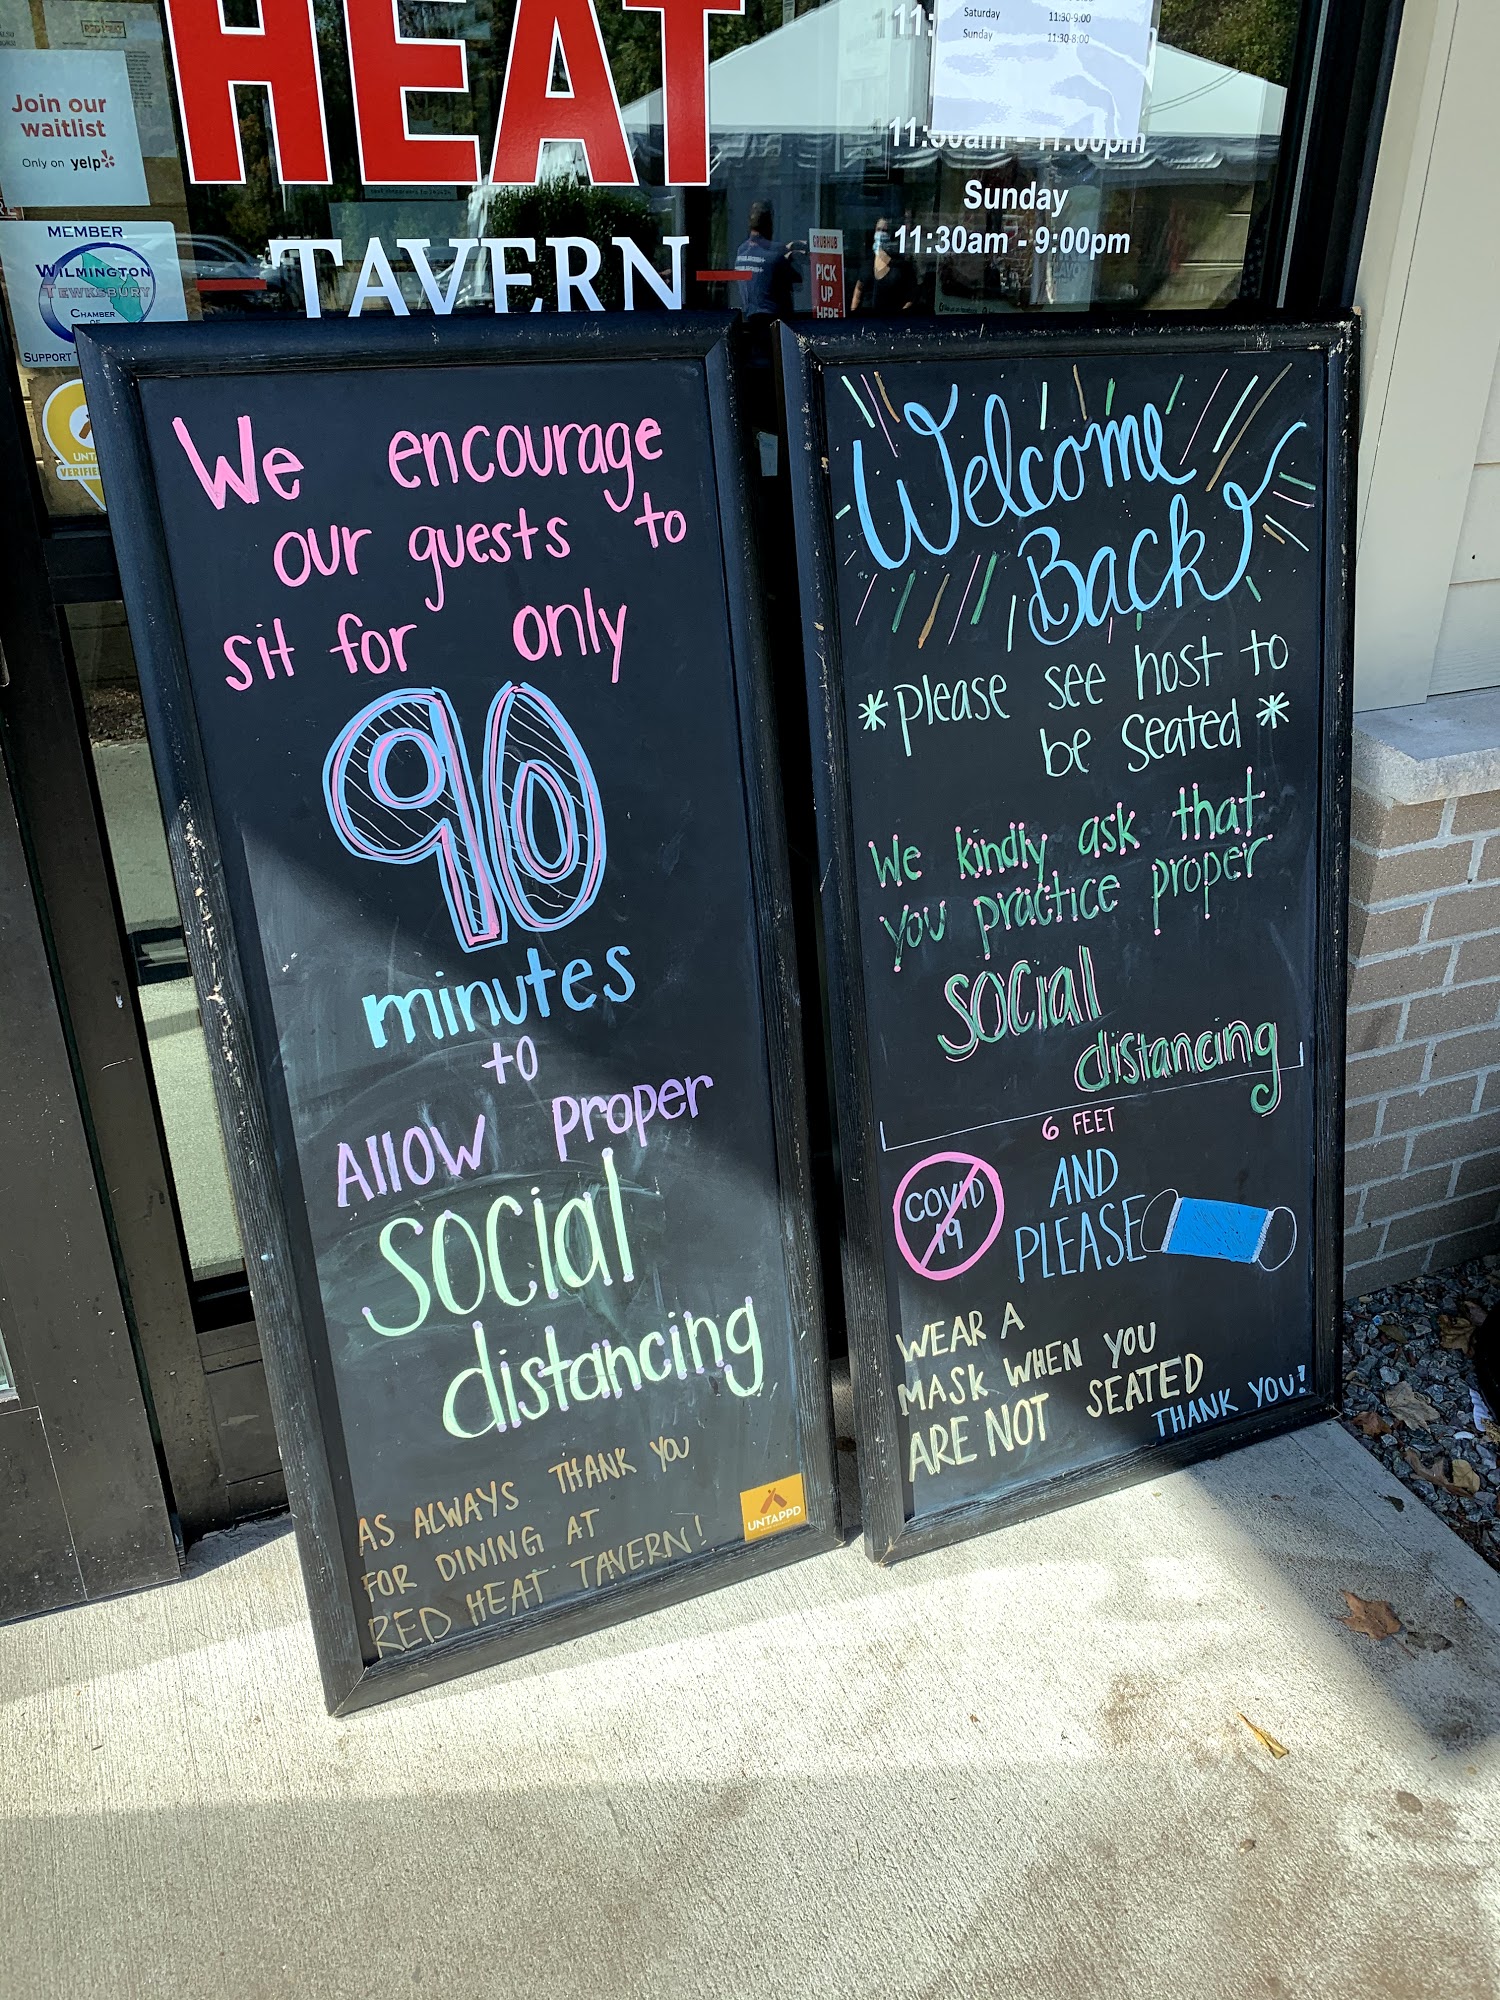 HEAT
TAVERN
Join our
waitlist
Only on yelp
MEMBER
WILMINGTON
TEWKSBURY
CHAMBER
OF
SUPPORT
UNT
VERIFIE
Saturday 11:30-9:00
Sunday 11:30-8:00
11:30am - 11:00pm
Sunday
11:30am - 9:00pm
GRUBHUB
PICK
UP
HERE
We encourage
our guests to
sit for only
90
minutes
to
Allow proper
social
distancing
AS ALWAYS THANK YOU
FOR DINING AT
RED HEAT TAVERN!
UNTAPPD
Welcome
Back
*please see host to
be seated*
We kindly ask that
you practice proper
social
distancing
6 FEET
COVID
19
AND
PLEASE
WEAR A
MASK WHEN YOU
ARE NOT SEATED
THANK YOU!